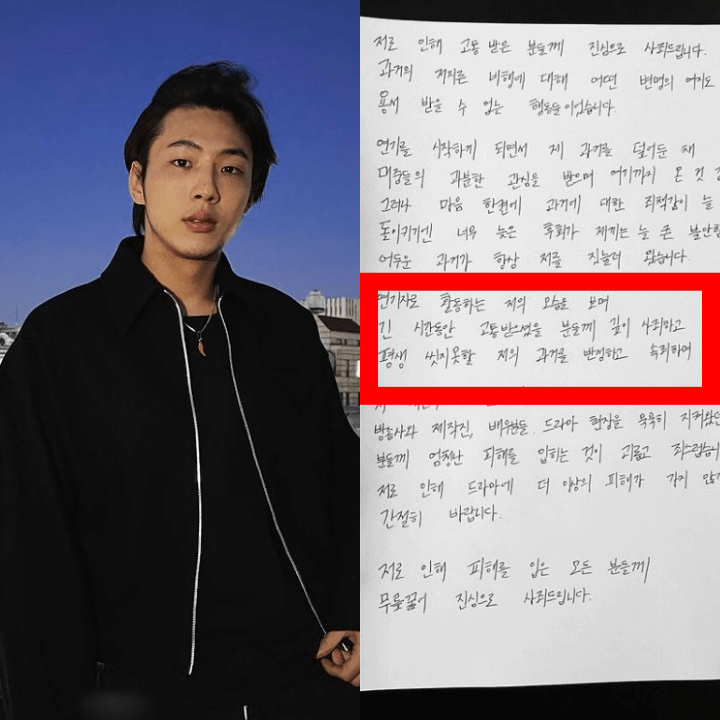 저로 인해 고통 받은 분들께 진심으로 사죄드립니다.
과거의 저지른 비행에 대해 어떤 변명의 여지도
용서 받을 수 없는 행동들이었습니다.
연기를 시작하게 되면서 제 과거를 덮어둔 채
대중들의 과분한 관심을 받으며 여기까지 온 것 같
그러나 마음 한켠에 과거에 대한 죄책감이 늘
돌이키기엔 너무 늦은 후회가 제게는 늘 큰 불안함
어두운 과거가 항상 저를 짓눌러 왔습니다.
연기자로 활동하는 저의 모습을 보며
긴 시간동안 고통받으셨을 분들께 깊이 사죄하고
평생 씻지못할 저의 과거를 반성하고 속죄하며
방송사와 제작진, 배우분들, 드라마 현장을 묵묵히 지켜왔던
분들께 엄청난 피해를 입히는 것이 괴롭고 죄스럽습니
저로 인해 드라마에 더 이상의 피해가 가지 않기
간절히 바랍니다.
저로 인해 피해를 입은 모든 분들께
무릎꿇어 진심으로 사죄드립니다.